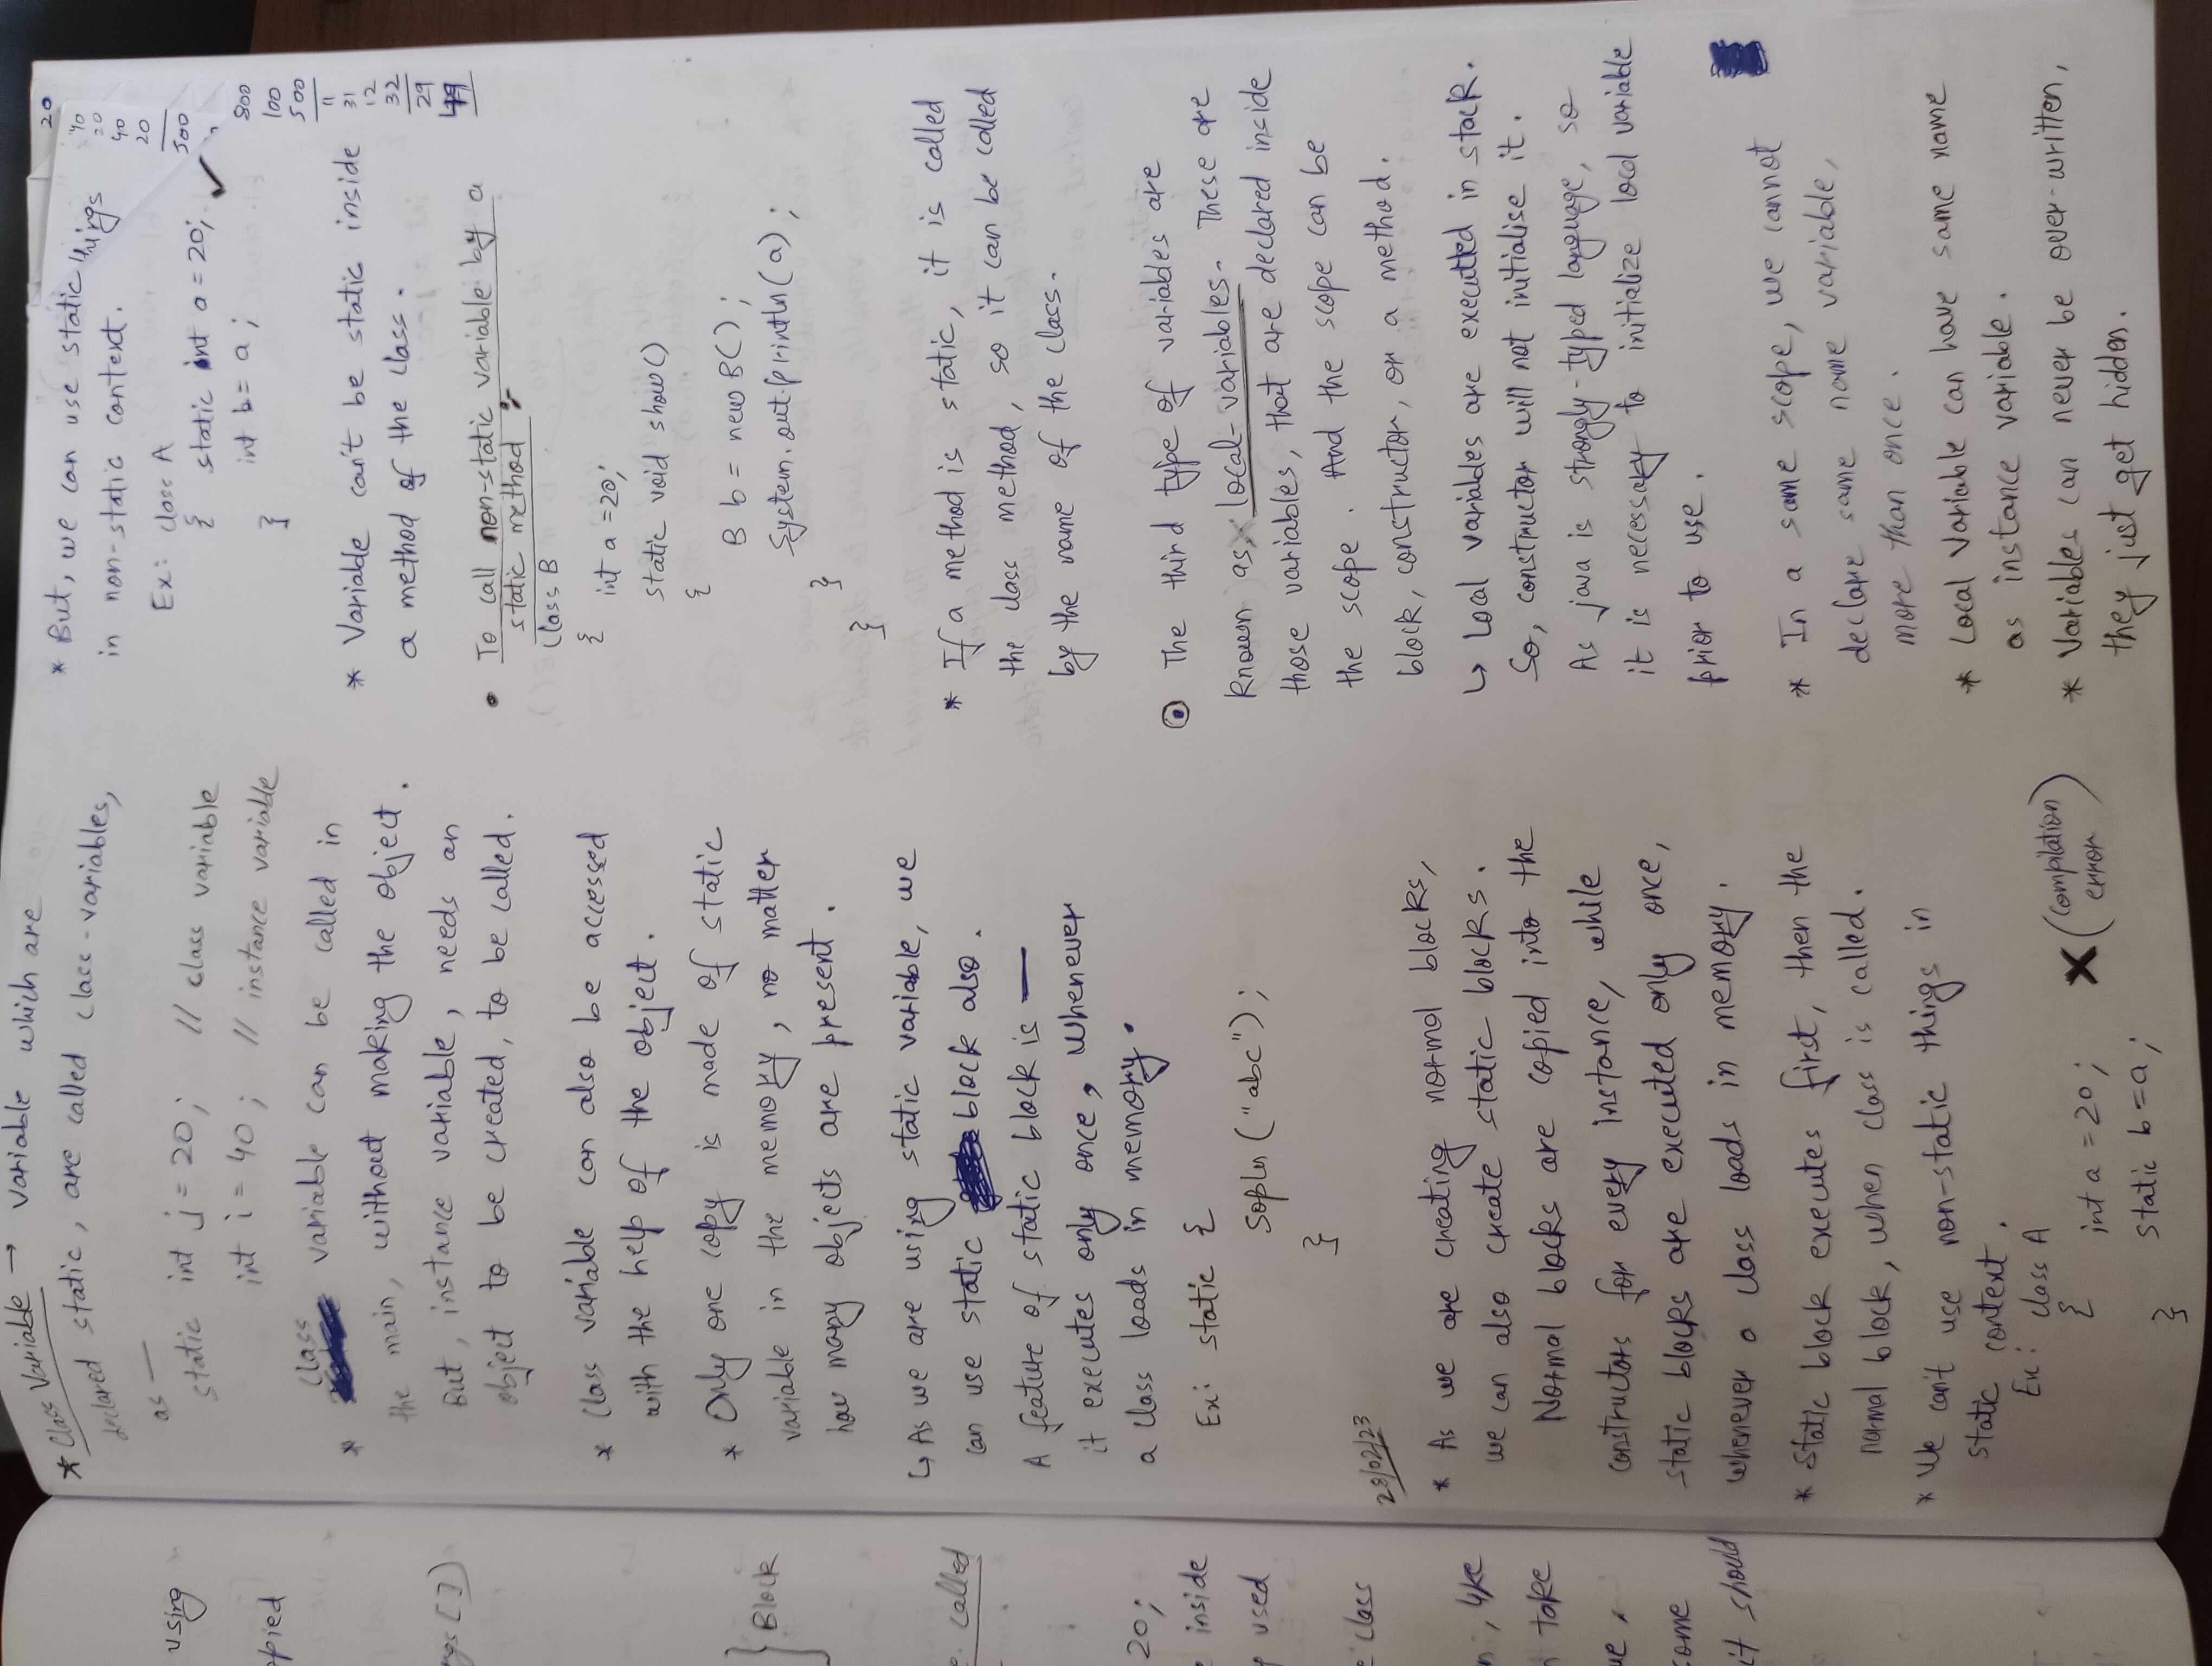 using
opied
rgs[])
Block
e. called
20;
e inside
g used
e class
n, like
n take
ue,
some
it should
* Class Variable → variable which are
declared static, are called class-variables,
as —
static int j = 20; // class variable
int i = 40; // instance variable
* class variable can be called in
the main, without making the object.
But, instance variable, needs an
object to be created, to be called.
* Class variable can also be accessed
with the help of the object.
* Only one copy is made of static
variable in the memory, no matter
how many objects are present.
↳ As we are using static variable, we
can use static block also.
A feature of static block is —
it executes only once, whenever
a class loads in memory.
Ex: static {
Sopln ("abc");
}
28/02/23
* As we are creating normal blocks,
we can also create static blocks.
Normal blocks are copied into the
constructors for every instance, while
static blocks are executed only once,
whenever a class loads in memory.
* Static block executes first, then the
normal block, when class is called.
* We can't use non-static things in
static context.
Ex: class A
{
int a = 20; ✗ (compilation
error)
static b = a;
}
* But, we can use static things
in non-static context.
Ex: class A
{ static int a = 20; ✓
int b = a;
}
* Variable can't be static inside
a method of the class.
• To call non-static variable by a
static method :-
Class B
{
int a = 20;
static void show()
{
B b = new B();
System.out.println(a);
}
}
* If a method is static, it is called
the class method, so it can be called
by the name of the class.
⊙ The third type of variables are
known as, local-variables. These are
those variables, that are declared inside
the scope. And the scope can be
block, constructor, or a method.
↳ Local variables are executted in stack.
So, constructor will not initialise it.
As java is strongly-typed language, so
it is necessary to initialize local variable
prior to use.
* In a same scope, we cannot
declare same name variable,
more than once.
* Local Variable can have same name
as instance variable.
* Variables can never be over-written,
they just get hidden.
20
40
20
40
20
500
800
100
500
11
31
12
32
29